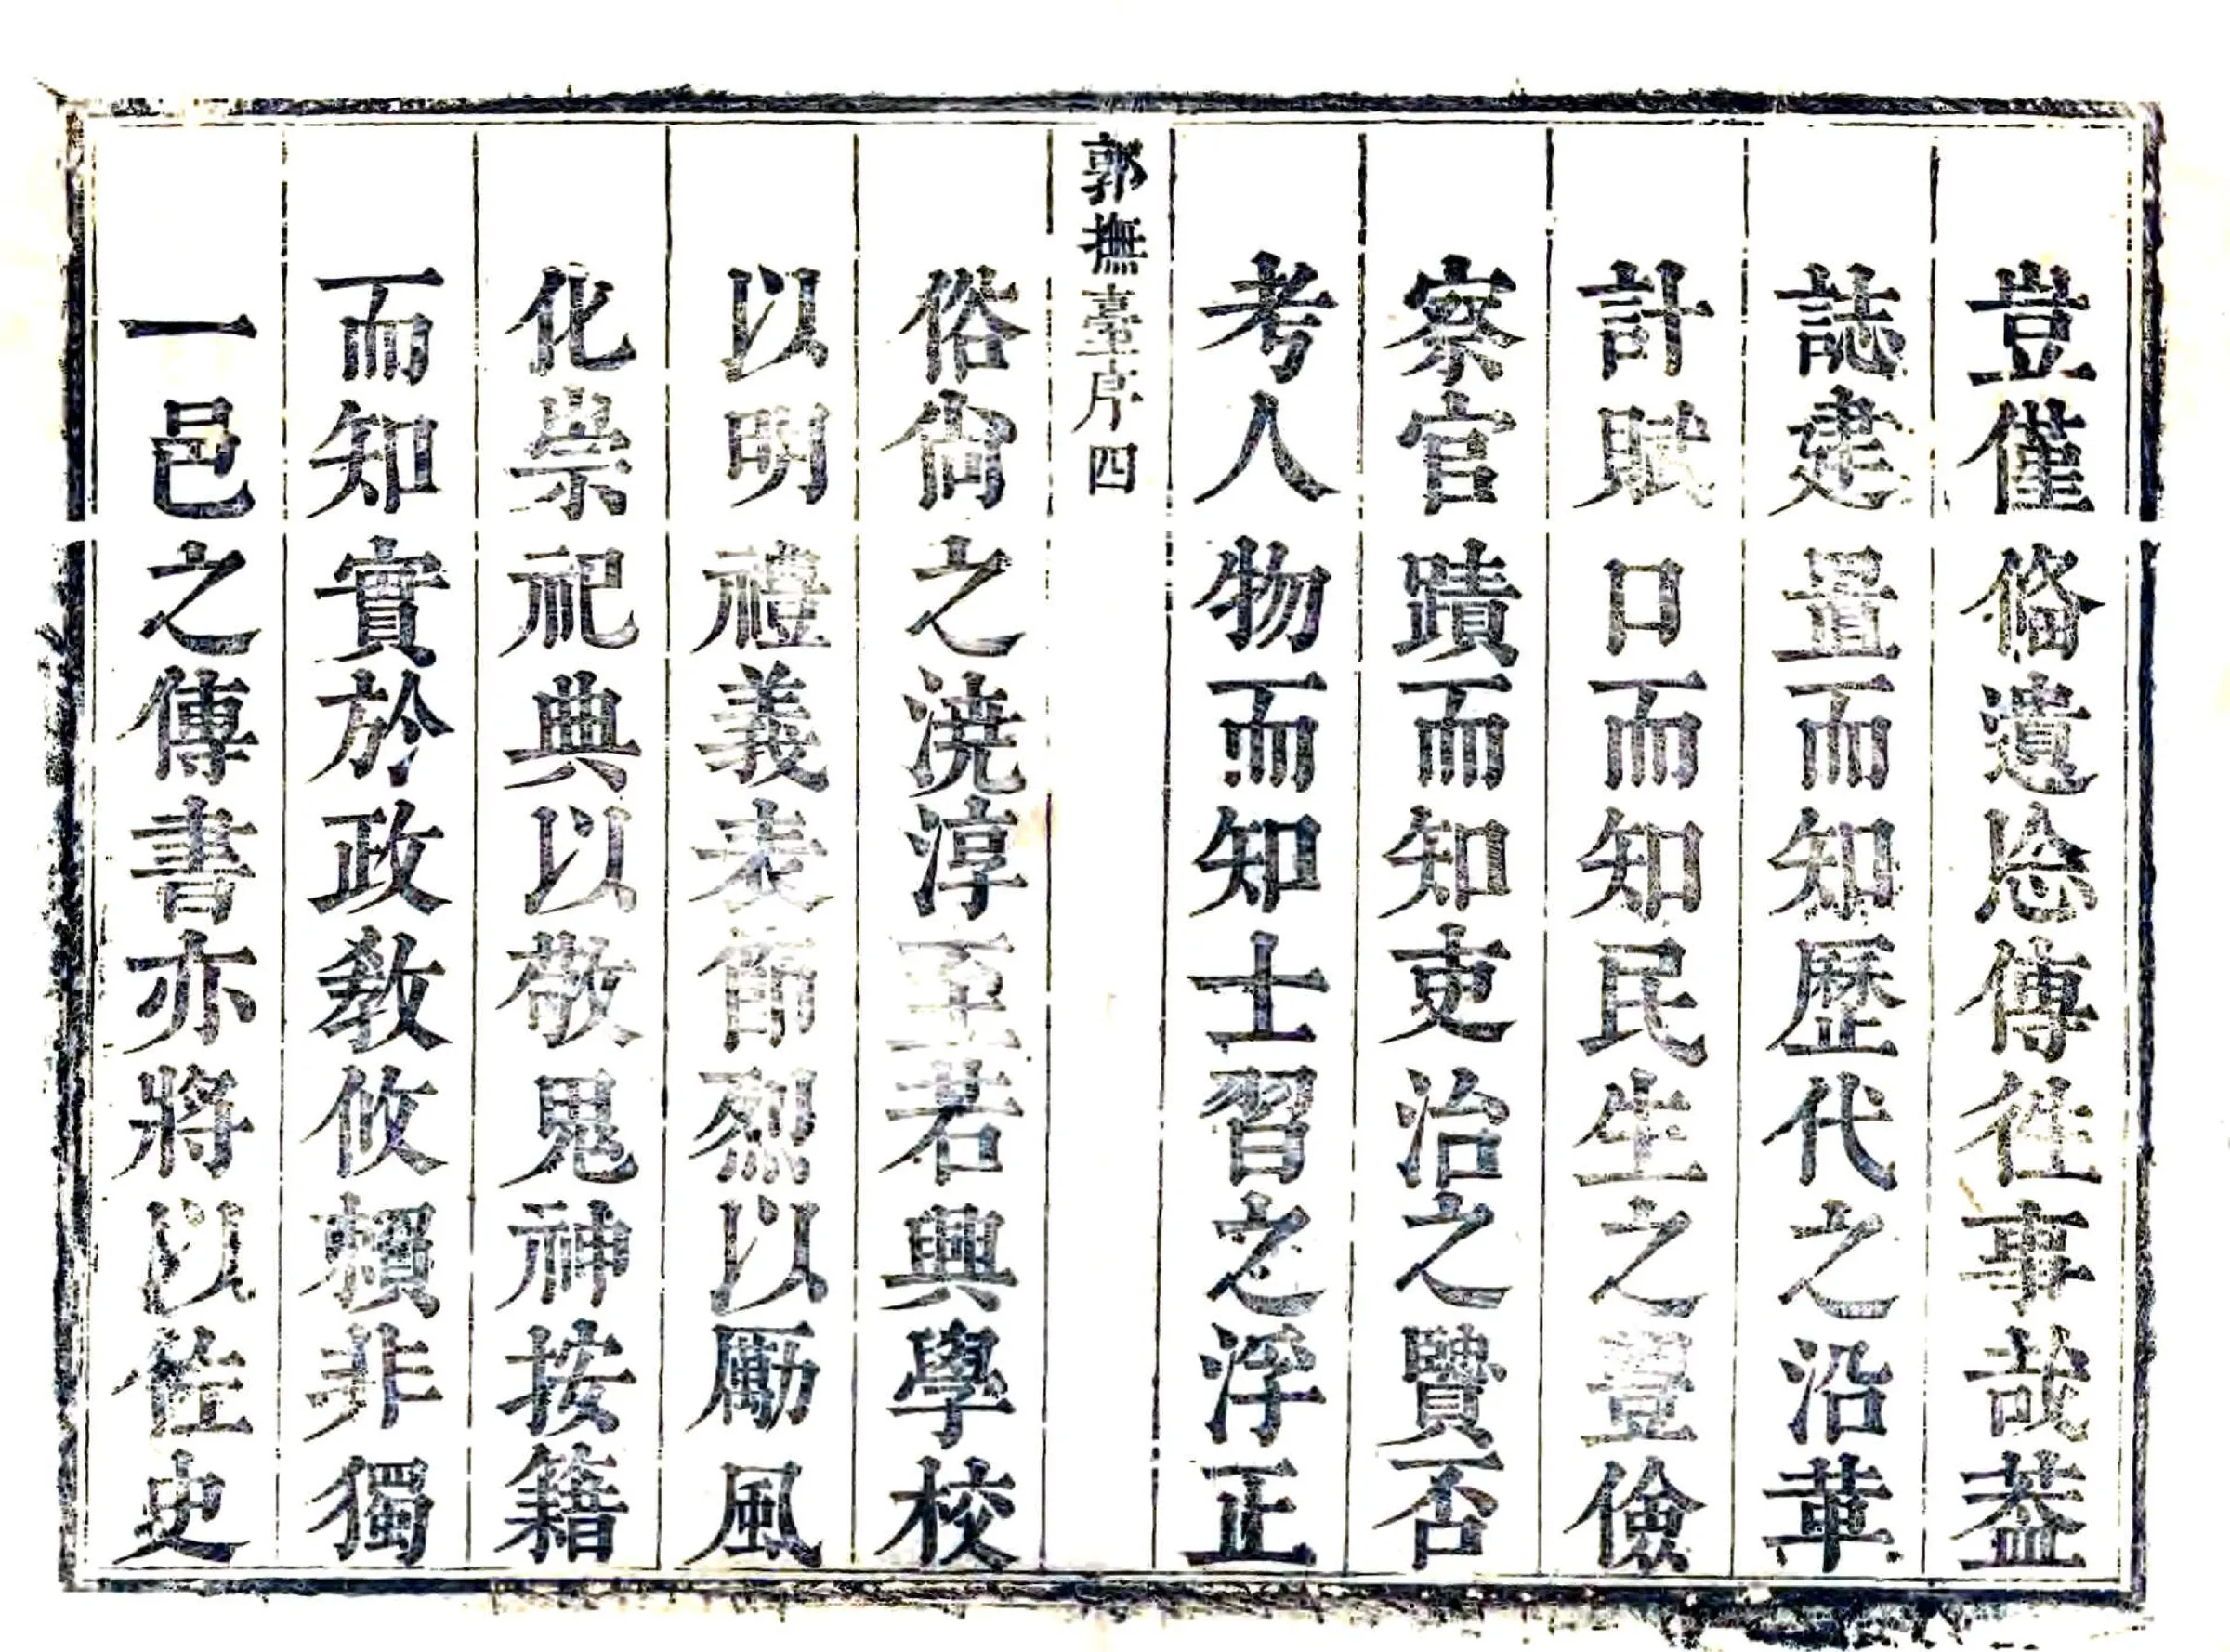 豈僅俻遺忘傳徃事哉葢
誌建置而知歷代之沿革
計賦口而知民生之豐儉
察官蹟而知吏治之賢否
考人物而知士習之浮正
郭撫臺序四
俗尙之澆淳至若興學校
以明禮義表節烈以勵風
化崇祀典以敬鬼神按籍
而知實於政敎攸賴非獨
一邑之傳書亦將以佐史